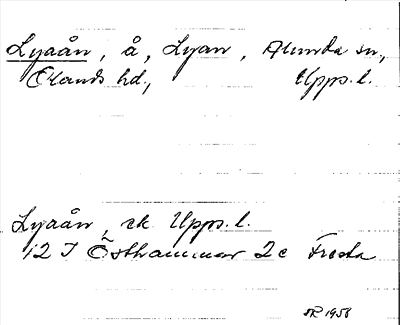 Lyaån, å, Lyan, Alunda sn,
Ölands hd, Upps. l.
Lyaån, rk Upps. l.
12 I Östhammar 2c Fresta
SR 1958